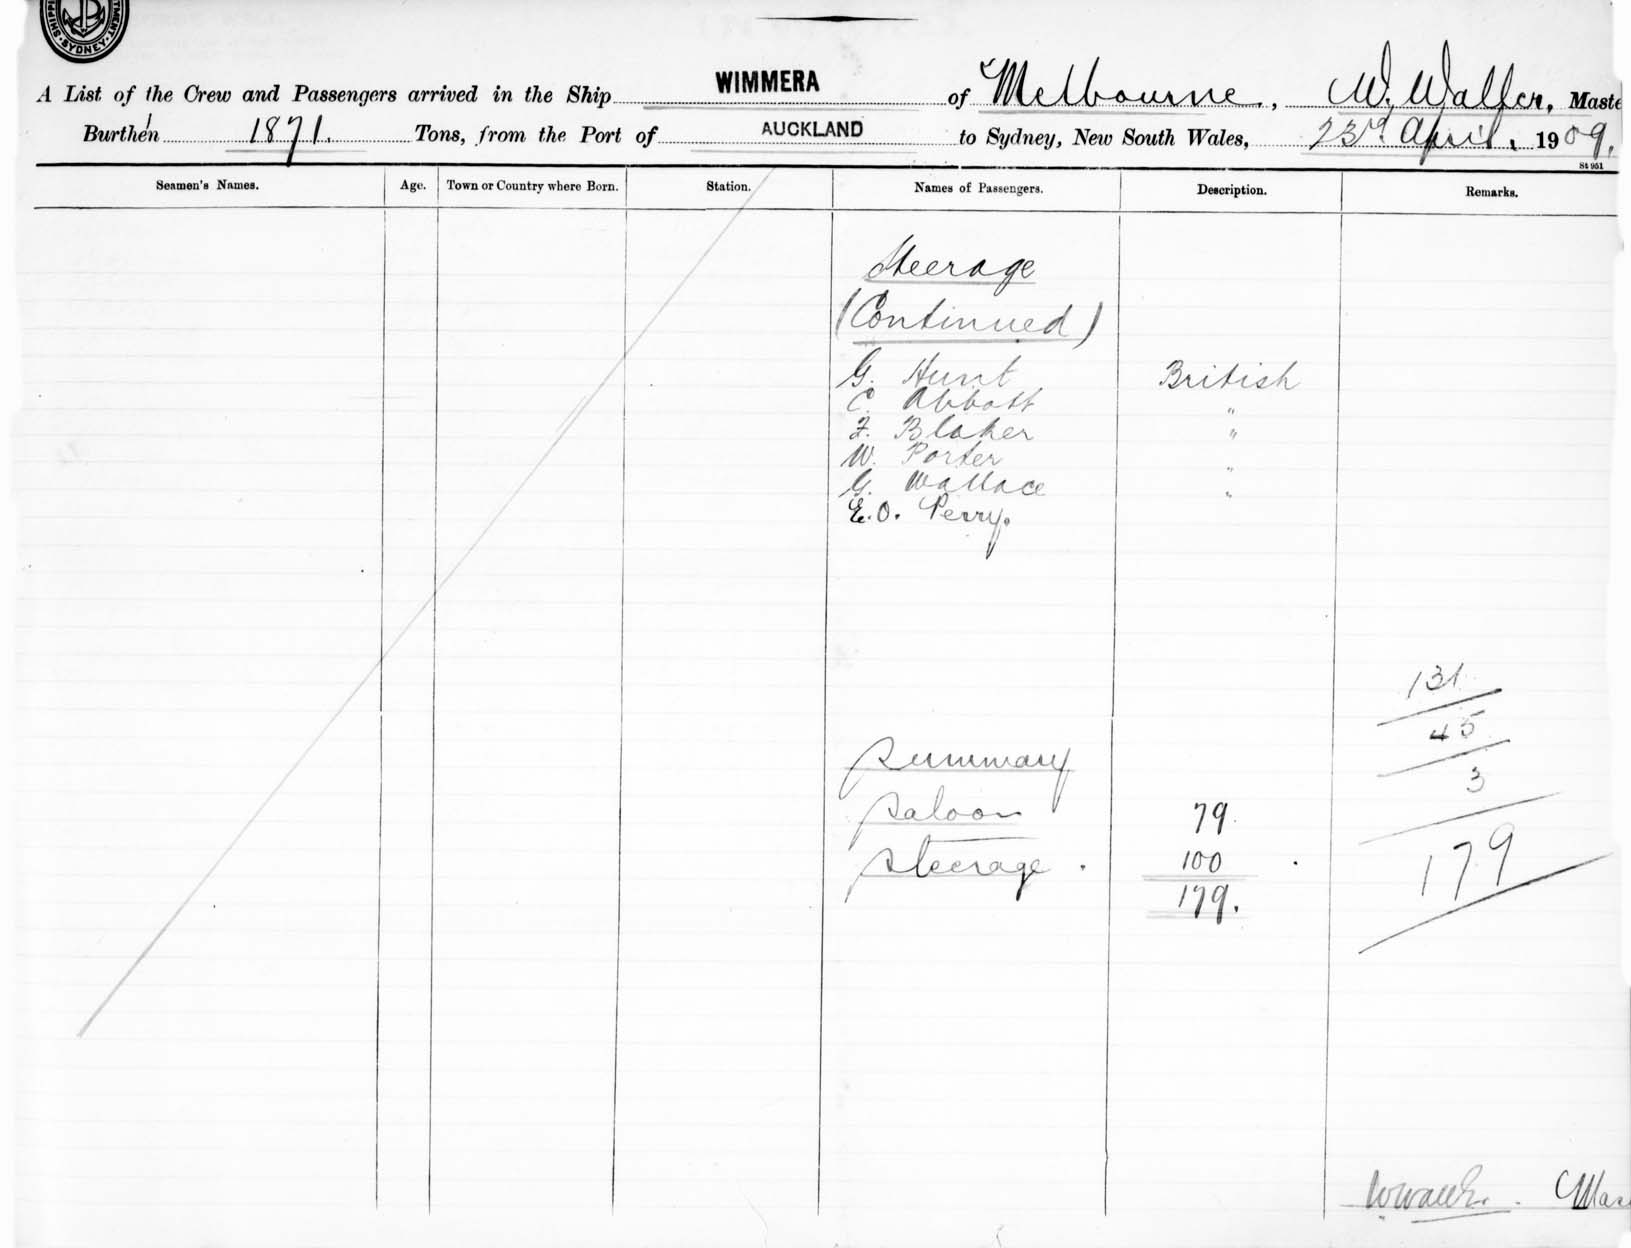 SYDNEY
A List of the Crew and Passengers arrived in the Ship WIMMERA of Melbourne, W. Waller, Maste
Burthen 1871. Tons, from the Port of AUCKLAND to Sydney, New South Wales, 23rd April, 1909.
St 951
Seamen's Names. Age. Town or Country where Born. Station. Names of Passengers. Description. Remarks.
Steerage
(Continued)
G. Hunt British
C. Abbott "
F. Blaker "
W. Porter "
G. Wallace "
E. O. Perry.
131
45
Summary
3
Saloon 79
Steerage . 100
179
179.
Mas